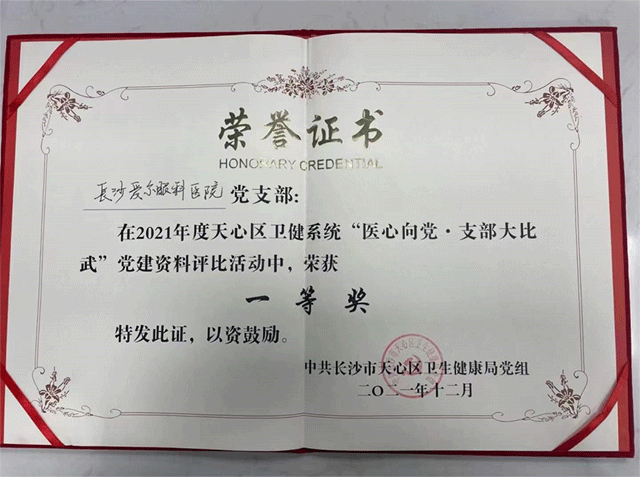 荣誉证书
HONORARY CREDENTIAL
長沙爱尔眼科医院 党支部：
在2021年度天心区卫健系统“医心向党·支部大比
武”党建资料评比活动中，荣获
一等奖
特发此证，以资鼓励。
中共长沙市天心区卫生健康局党组
二〇二一年十二月